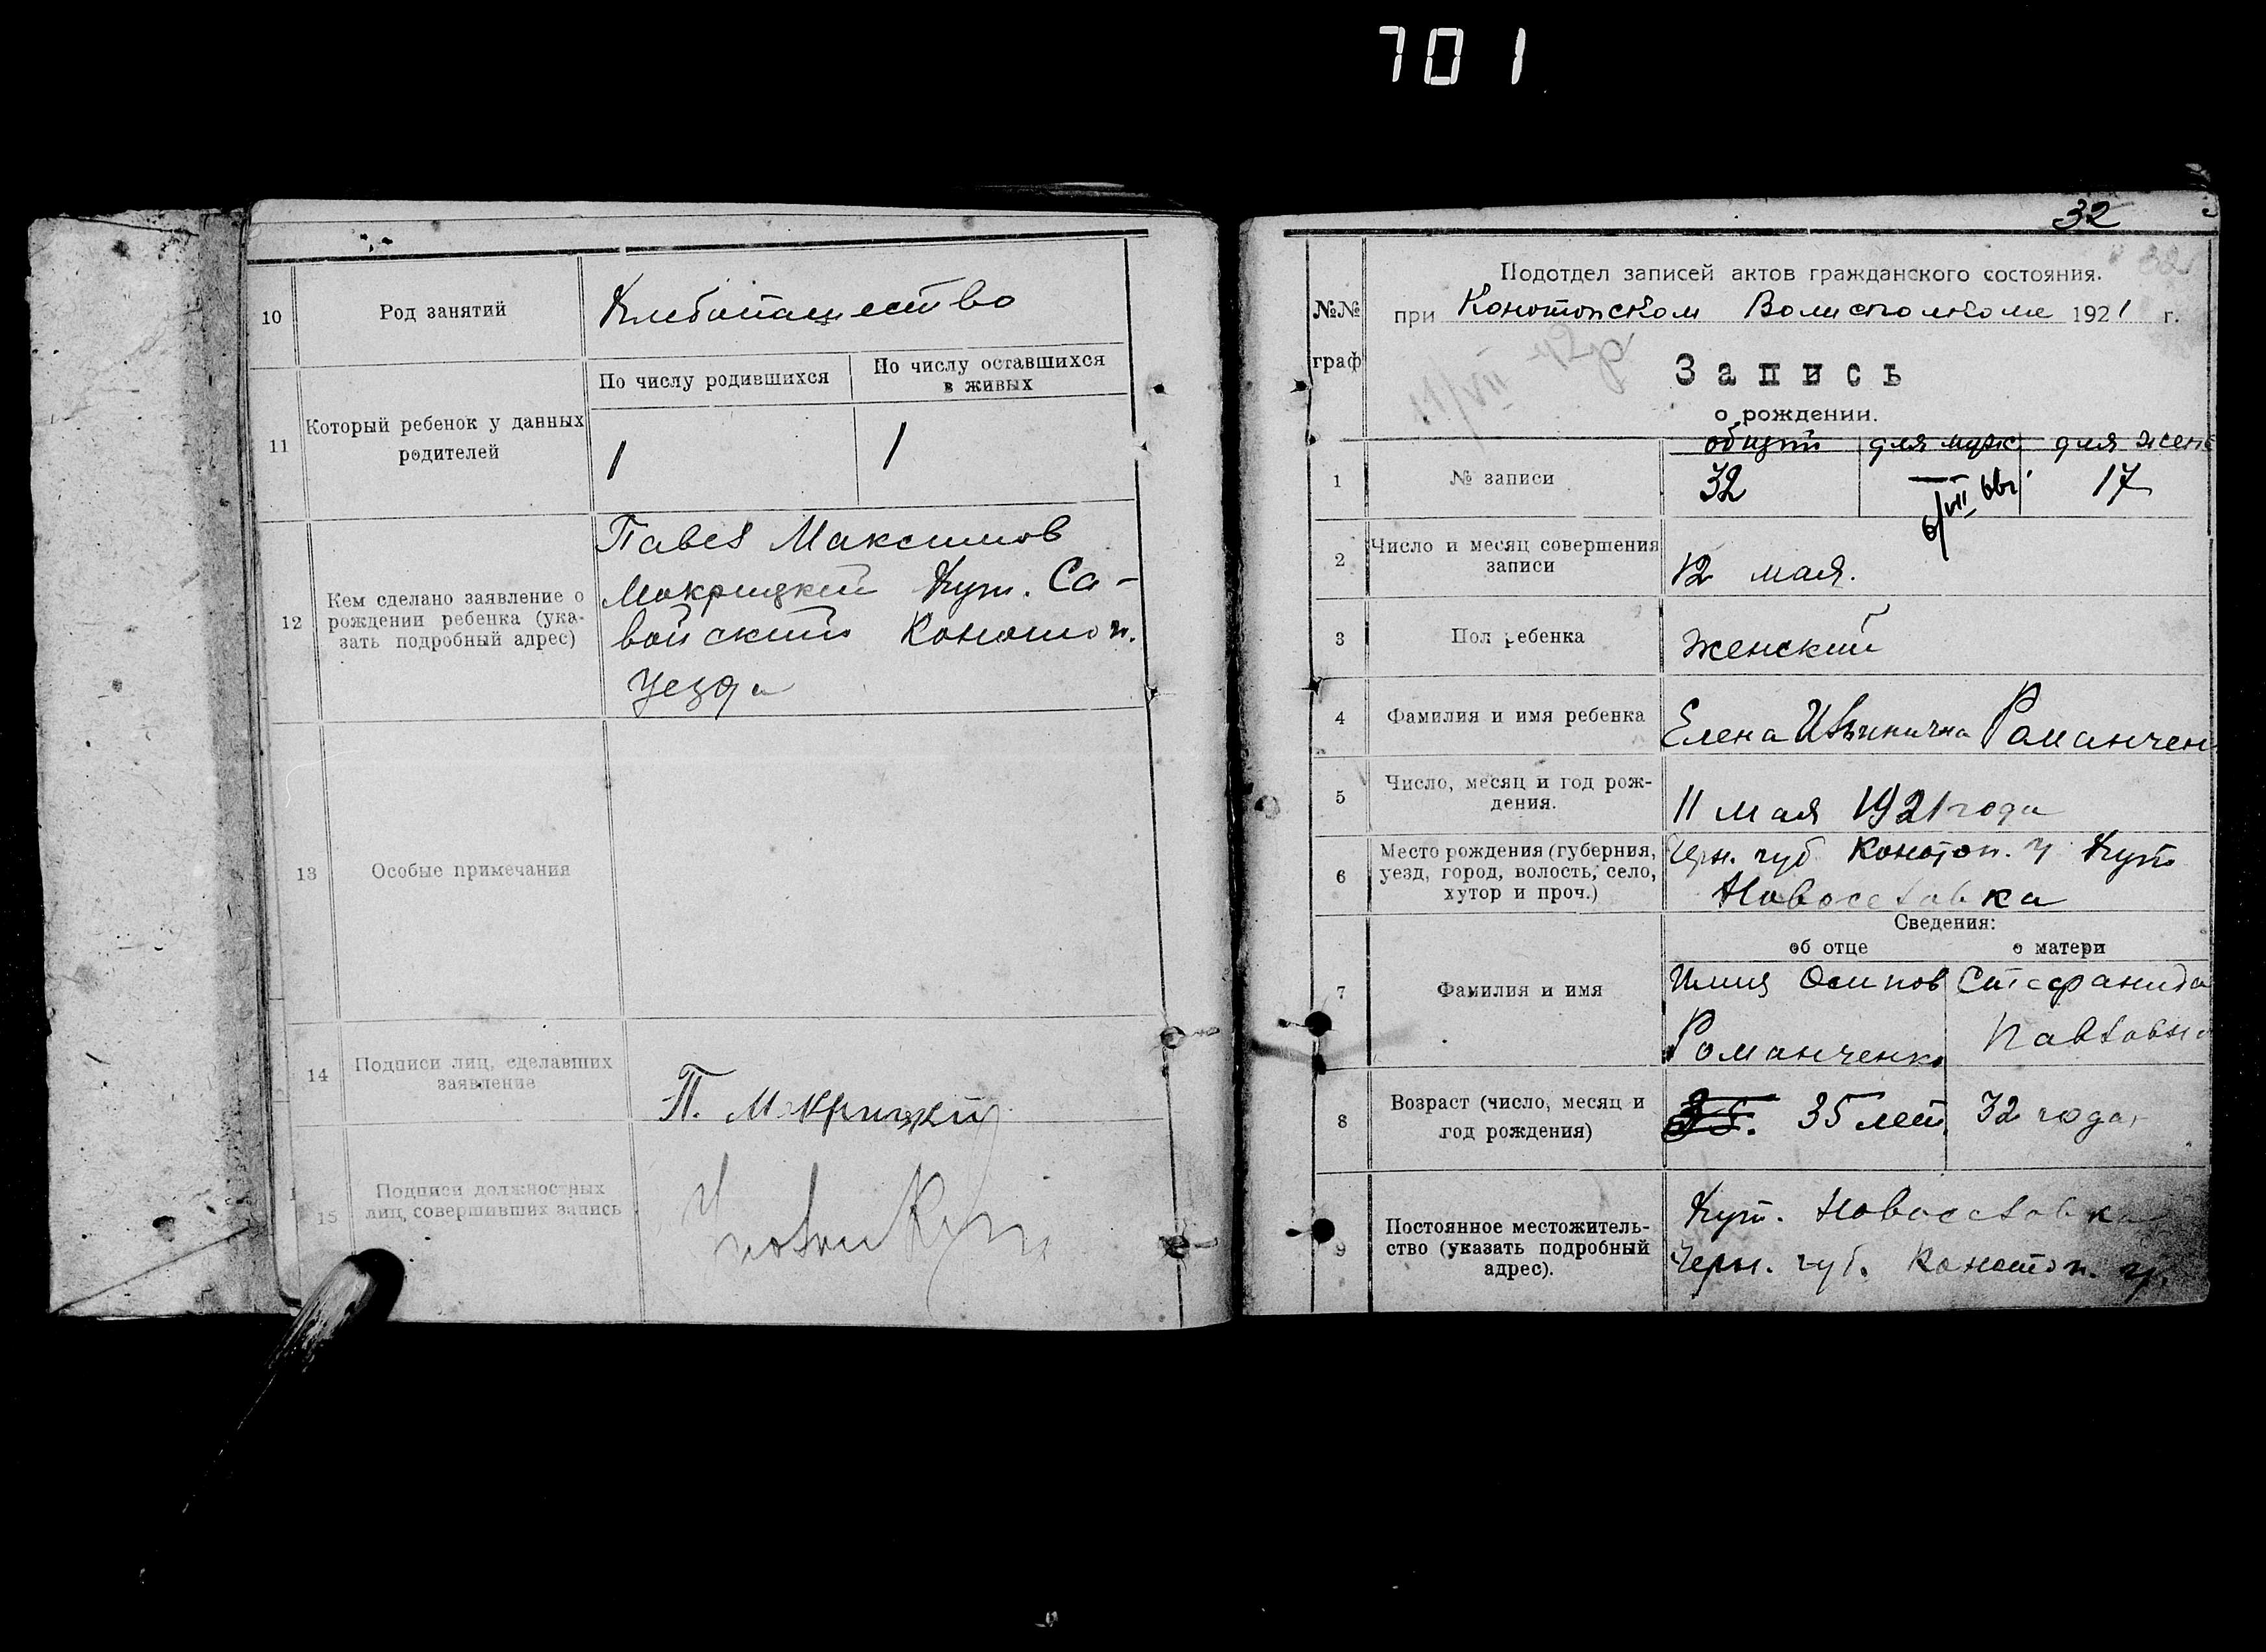 701
10
Род занятий
Хлебопашество
11
Который ребенок у данных
родителей
По числу родившихся
По числу оставшихся
в живых
1
1
12
Кем сделано заявление о
рождении ребенка (ука-
зать подробный адрес)
Павел Максимов
Мокрицкий Хут. Са-
войский Конотоп.
уезда
13
Особые примечания
14
Подписи лиц, сделавших
заявление
П. Мокрицкий
15
Подписи должностных
лиц, совершивших запись
32
32
Подотдел записей актов гражданского состояния.
№№
граф
при Конотопском Волисполкоме 1921 г.
11/VII
Запись
о рождении.
общий для муж. для жен
1
№ записи
32
—
17
6/VII
2
Число и месяц совершения
записи
12 мая.
3
Пол ребенка
Женский
4
Фамилия и имя ребенка
Елена Ильинична Романчен
5
Число, месяц и год рож-
дения.
11 мая 1921 года
6
Место рождения (губерния,
уезд, город, волость, село,
хутор и проч.)
Черн. губ Конотоп. у Хут
Новоселовка
Сведения:
об отце
о матери
7
Фамилия и имя
Илия Осипов
Романченко
Стефанида
Павловна
8
Возраст (число, месяц и
год рождения)
35 лет
32 года
9
Постоянное местожитель-
ство (указать подробный
адрес).
Хут. Новоселовка
Черн. губ. Конотоп. у.